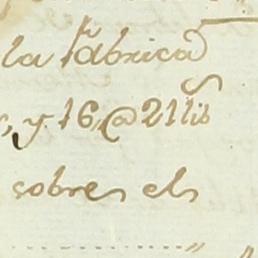 la fabrica
s, y 16 @ 21 lib
sobre el